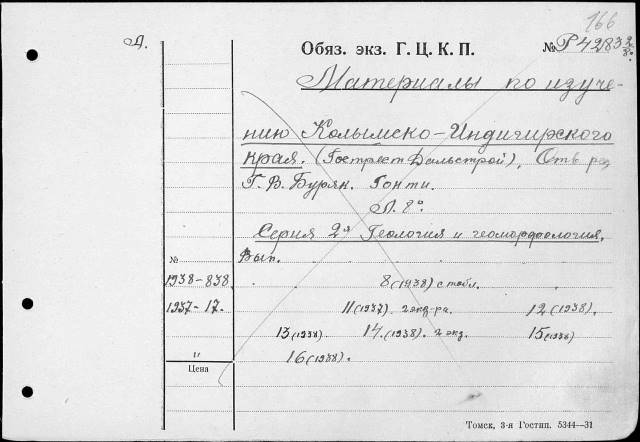 166
Д.
Обяз. экз. Г. Ц. К. П. № Р4283 2/8°.
Материалы по изуче-
нию Колымско-Индигирского
края. (Гострест Дальстрой), Отв. ред
Г. В. Бурян. Гонти.
Л. 8°.
Серия 2я Геология и геоморфология.
№ Вып.
1938-838. 8 (1938) с табл.
1937-17. 11 (1937) 2 экз-ра. 12 (1938).
13 (1938) 14 (1938). 2 экз. 15 (1938)
" 16 (1938).
Цена
Томск, 3-я Гостип. 5344—31